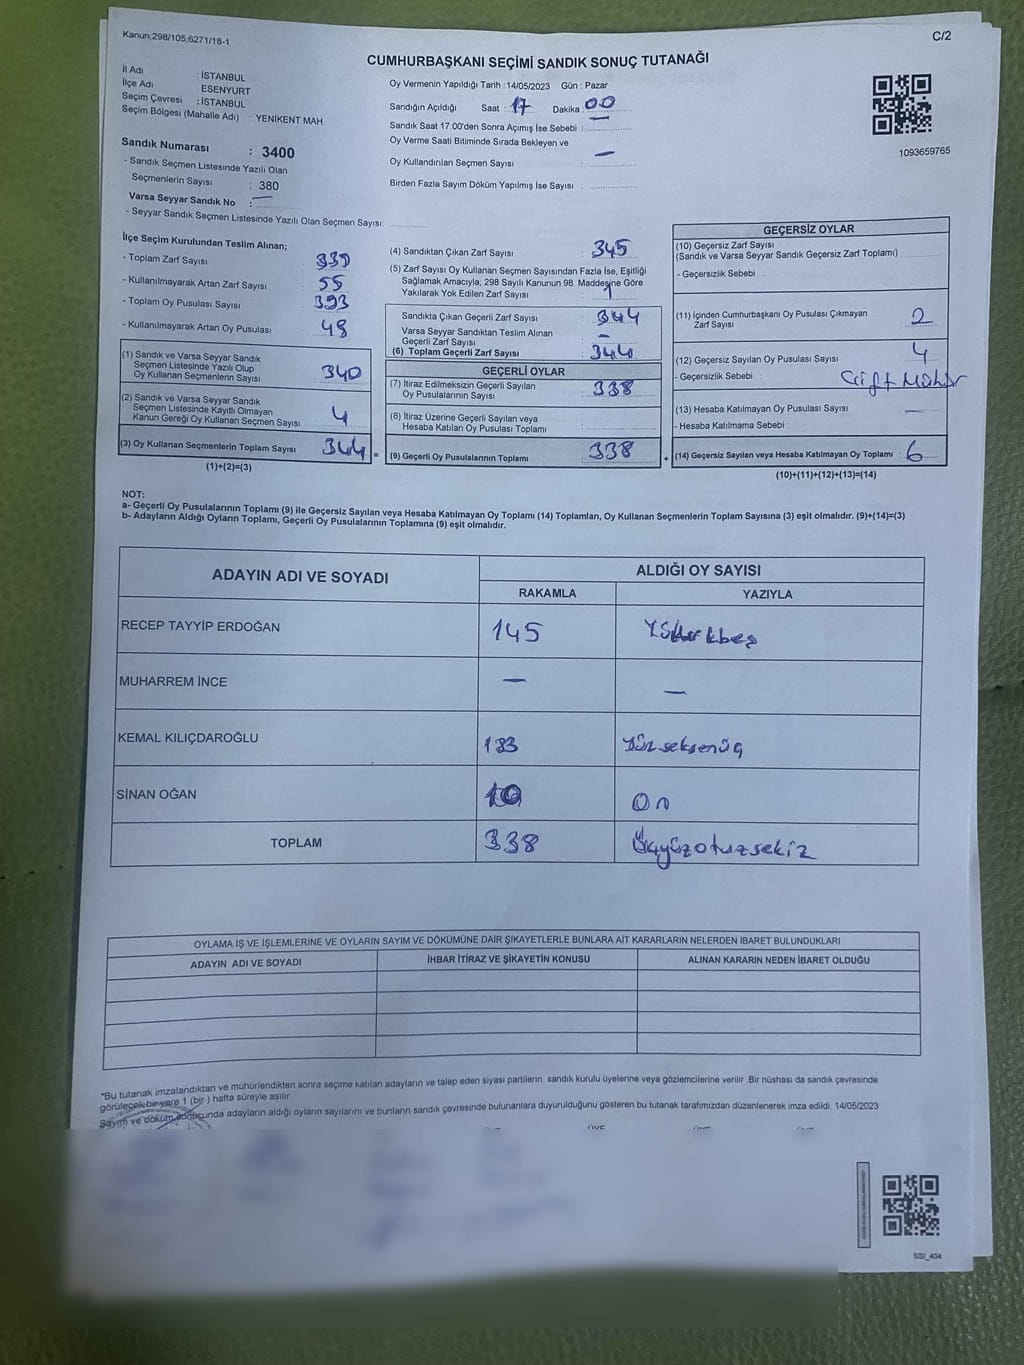 Kanun;298/105,6271/18-1
C/2
CUMHURBAŞKANI SEÇİMİ SANDIK SONUÇ TUTANAĞI
İl Adı : İSTANBUL
İlçe Adı ESENYURT
Seçim Çevresi : İSTANBUL
Seçim Bölgesi (Mahalle Adı) YENİKENT MAH.
Oy Vermenin Yapıldığı Tarih : 14/05/2023 Gün : Pazar
Sandığın Açıldığı Saat : 17 Dakika : 00
Sandık Saat 17.00'den Sonra Açımış İse Sebebi :
Oy Verme Saati Bitiminde Sırada Bekleyen ve
Oy Kullandırılan Seçmen Sayısı : —
Birden Fazla Sayım Döküm Yapılmış İse Sayısı :
1093659765
Sandık Numarası : 3400
- Sandık Seçmen Listesinde Yazılı Olan
Seçmenlerin Sayısı : 380
Varsa Seyyar Sandık No : —
- Seyyar Sandık Seçmen Listesinde Yazılı Olan Seçmen Sayısı:
İlçe Seçim Kurulundan Teslim Alınan;
- Toplam Zarf Sayısı
- Kullanılmayarak Artan Zarf Sayısı : 55
- Toplam Oy Pusulası Sayısı 393
- Kullanılmayarak Artan Oy Pusulası 48
(1) Sandık ve Varsa Seyyar Sandık
Seçmen Listesinde Yazılı Olup
Oy Kullanan Seçmenlerin Sayısı 340
(2) Sandık ve Varsa Seyyar Sandık
Seçmen Listesinde Kayıtlı Olmayan
Kanun Gereği Oy Kullanan Seçmen Sayısı 4
(3) Oy Kullanan Seçmenlerin Toplam Sayısı 344 =
(1)+(2)=(3)
(4) Sandıktan Çıkan Zarf Sayısı : 345
(5) Zarf Sayısı Oy Kullanan Seçmen Sayısından Fazla İse, Eşitliği
Sağlamak Amacıyla; 298 Sayılı Kanunun 98. Maddesine Göre
Yakılarak Yok Edilen Zarf Sayısı : 1
Sandıkta Çıkan Geçerli Zarf Sayısı : 344
Varsa Seyyar Sandıktan Teslim Alınan
Geçerli Zarf Sayısı : —
(6) Toplam Geçerli Zarf Sayısı : 344
GEÇERLİ OYLAR
(7) İtiraz Edilmeksizin Geçerli Sayılan
Oy Pusulalarının Sayısı 338
(8) İtiraz Üzerine Geçerli Sayılan veya
Hesaba Katılan Oy Pusulası Toplamı
(9) Geçerli Oy Pusulalarının Toplamı 338 +
GEÇERSİZ OYLAR
(10) Geçersiz Zarf Sayısı
(Sandık ve Varsa Seyyar Sandık Geçersiz Zarf Toplamı)
- Geçersizlik Sebebi :
(11) İçinden Cumhurbaşkanı Oy Pusulası Çıkmayan
Zarf Sayısı 2
(12) Geçersiz Sayılan Oy Pusulası Sayısı 4
- Geçersizlik Sebebi : Çift Mühür
(13) Hesaba Katılmayan Oy Pusulası Sayısı —
- Hesaba Katılmama Sebebi :
(14) Geçersiz Sayılan veya Hesaba Katılmayan Oy Toplamı : 6
(10)+(11)+(12)+(13)=(14)
NOT:
a- Geçerli Oy Pusulalarının Toplamı (9) ile Geçersiz Sayılan veya Hesaba Katılmayan Oy Toplamı (14) Toplamları, Oy Kullanan Seçmenlerin Toplam Sayısına (3) eşit olmalıdır. (9)+(14)=(3)
b- Adayların Aldığı Oyların Toplamı, Geçerli Oy Pusulalarının Toplamına (9) eşit olmalıdır.
ADAYIN ADI VE SOYADI
ALDIĞI OY SAYISI
RAKAMLA YAZIYLA
RECEP TAYYİP ERDOĞAN 145
MUHARREM İNCE — —
KEMAL KILIÇDAROĞLU 183 Yüzseksenüç
SİNAN OĞAN 10 On
TOPLAM 338 Üçyüzotuzsekiz
OYLAMA İŞ VE İŞLEMLERİNE VE OYLARIN SAYIM VE DÖKÜMÜNE DAİR ŞİKAYETLERLE BUNLARA AİT KARARLARIN NELERDEN İBARET BULUNDUKLARI
ADAYIN ADI VE SOYADI İHBAR İTİRAZ VE ŞİKAYETİN KONUSU ALINAN KARARIN NEDEN İBARET OLDUĞU
*Bu tutanak imzalandıktan ve mühürlendikten sonra seçime katılan adayların ve talep eden siyasi partilerin sandık kurulu üyelerine veya gözlemcilerine verilir. Bir nüshası da sandık çevresinde
görülecek bir yere 1 (bir ) hafta süreyle asılır.
Sayım ve döküm sonucunda adayların aldığı oyların sayılarını ve bunların sandık çevresinde bulunanlara duyurulduğunu gösteren bu tutanak tarafımızdan düzenlenerek imza edildi. 14/05/2023
SSI_404